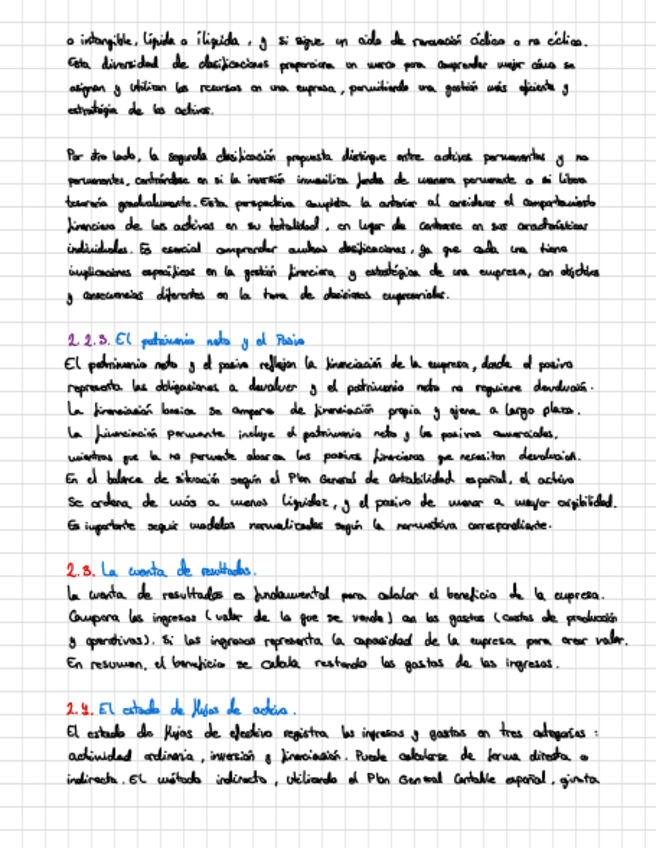 o intangible, líquida o ilíquida, y si sigue un ciclo de renovación cíclico o no cíclico.
Esta diversidad de clasificaciones proporciona un marco para comprender mejor cómo se
asignan y utilizan los recursos en una empresa, permitiendo una gestión más eficiente y
estratégica de los activos.
Por otro lado, la segunda clasificación propuesta distingue entre activos permanentes y no
permanentes, centrándose en si la inversión inmoviliza fondos de manera permanente o si libera
tesorería gradualmente. Esta perspectiva completa la anterior al considerar el comportamiento
financiero de los activos en su totalidad, en lugar de centrarse en sus características
individuales. Es esencial comprender ambas clasificaciones, ya que cada una tiene
implicaciones específicas en la gestión financiera y estratégica de una empresa, con objetivos
y consecuencias diferentes en la toma de decisiones empresariales.
2.2.3. El patrimonio neto y el Pasivo
El patrimonio neto y el pasivo reflejan la financiación de la empresa, donde el pasivo
representa las obligaciones a devolver y el patrimonio neto no requiere devolución.
La financiación basica se compone de financiación propia y ajena a largo plazo.
La financiación permanente incluye el patrimonio neto y los pasivos comerciales,
mientras que la no permanente abarca los pasivos financieros que necesitan devolución.
En el balance de situación según el Plan General de Contabilidad español, el activo
se ordena de más a menos liquidez, y el pasivo de menor a mayor exigibilidad.
Es importante seguir modelos normalizados según la normativa correspondiente.
2.3. La cuenta de resultados.
La cuenta de resultados es fundamental para calcular el beneficio de la empresa.
Compara los ingresos (valor de lo que se vende) con los gastos (costes de producción
y operativos). Si los ingresos representa la capacidad de la empresa para crear valor.
En resumen, el beneficio se calcula restando los gastos de los ingresos.
2.4. El estado de flujos de activo.
El estado de flujos de efectivo registra los ingresos y gastos en tres categorías:
actividad ordinaria, inversión y financiación. Puede calcularse de forma directa o
indirecta. El método indirecto, utilizando el Plan General Contable español,